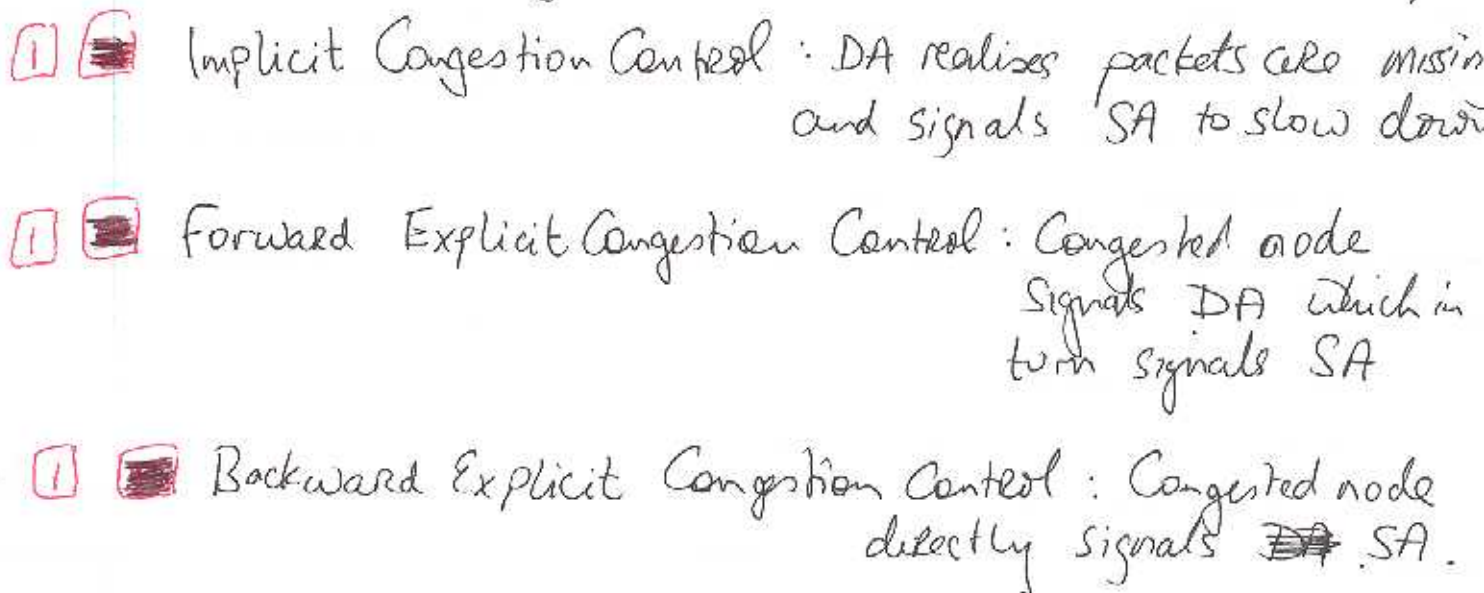 1 Implicit Congestion Control : DA realises packets are missin
and signals SA to slow down
1 Forward Explicit Congestion Control : Congested node
signals DA which in
turn signals SA
1 Backward Explicit Congestion Control : Congested node
directly signals SA.